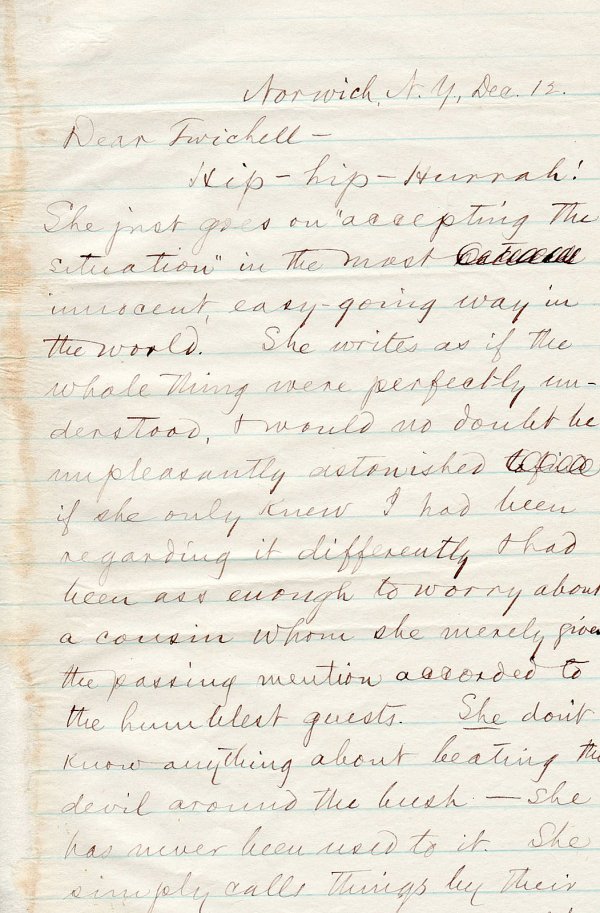 Norwich, N. Y., Dec. 12.
Dear Twichell—
Hip-hip-Hurrah!
She just goes on "accepting the
situation" in the most
innocent, easy-going way in
the world. She writes as if the
whole thing were perfectly un-
derstood, & would no doubt be
unpleasantly astonished
if she only knew I had been
regarding it differently & had
been ass enough to worry about
a cousin whom she merely gives
the passing mention accorded to
the humblest guests. She don't
know anything about beating the
devil around the bush — She
has never been used to it. She
simply calls things by their